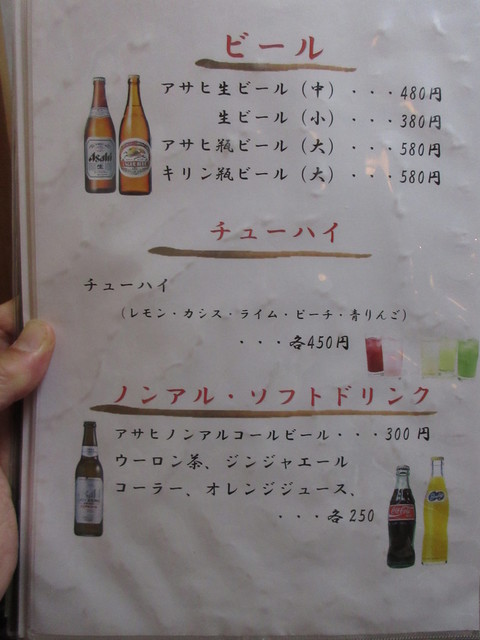 ビール
アサヒ生ビール（中）・・・480円
生ビール（小）・・・380円
アサヒ瓶ビール（大）・・・580円
キリン瓶ビール（大）・・・580円
Asahi
生
チューハイ
チューハイ
（レモン・カシス・ライム・ピーチ・青りんご）
・・・各450円
ノンアル・ソフトドリンク
アサヒノンアルコールビール・・・300円
ウーロン茶、ジンジャエール
コーラー、オレンジジュース、
・・・各250
Coca-Cola